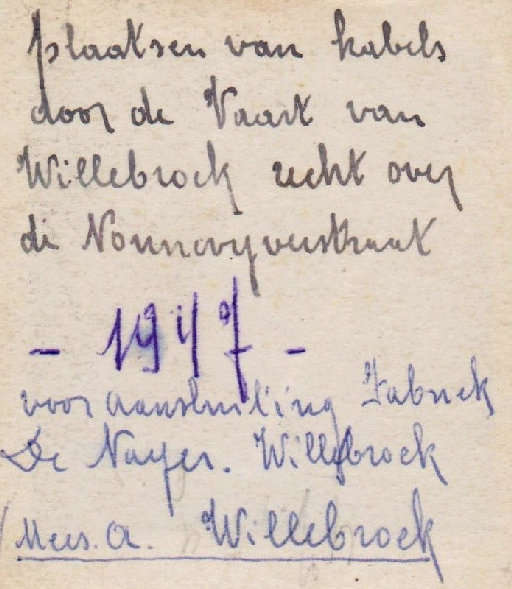 plaatsen van kabels
door de Vaart van
Willebroek recht over
de Nonnevyverstraat
- 1947 -
voor aansluiting Fabriek
De Nayer. Willebroek
Mees. A. Willebroek